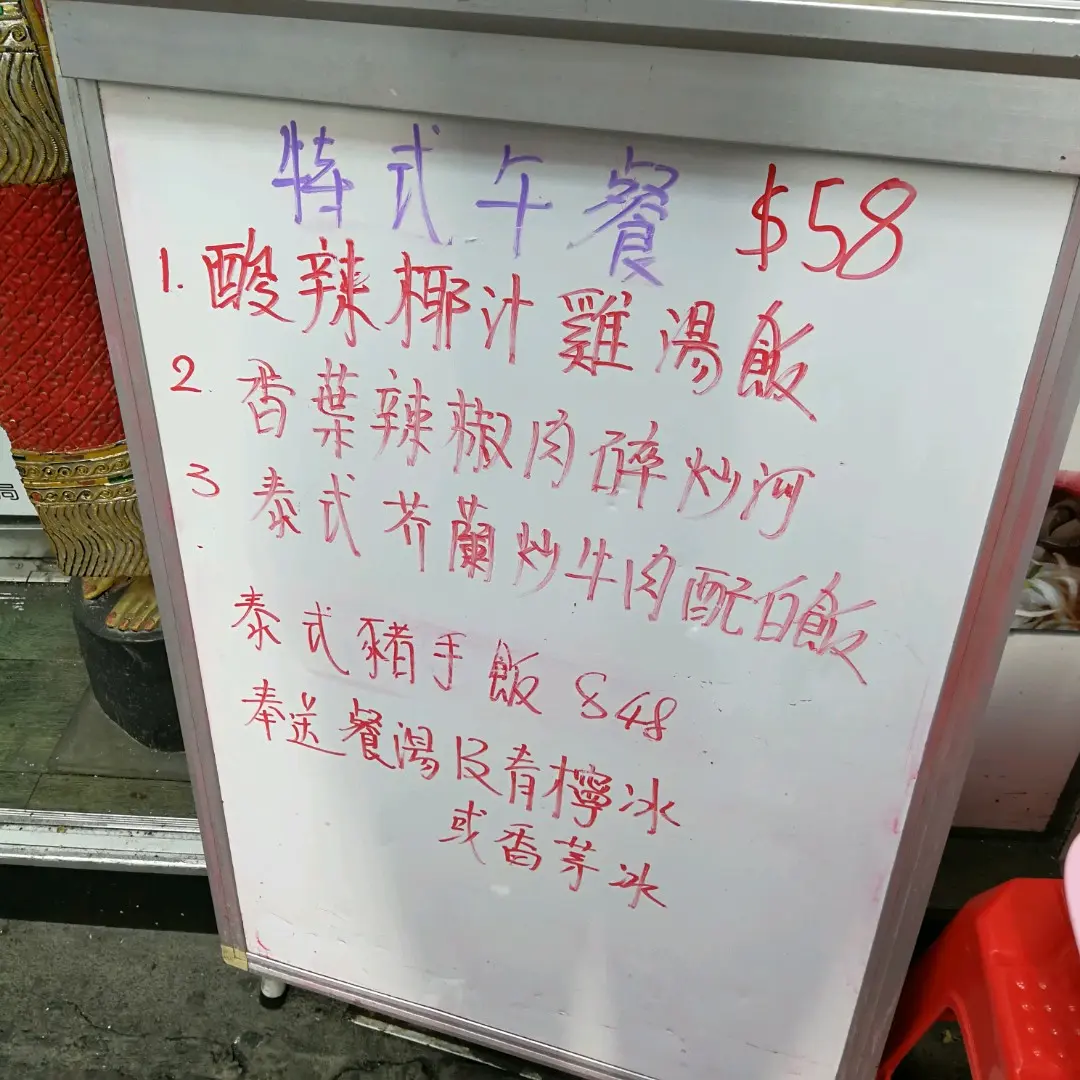 特式午餐 $58
1. 酸辣椰汁雞湯飯
2 香葉辣椒肉碎炒河
3 泰式芥蘭炒牛肉配白飯
泰式豬手飯 $48
奉送餐湯及青檸冰
或香茅冰
局